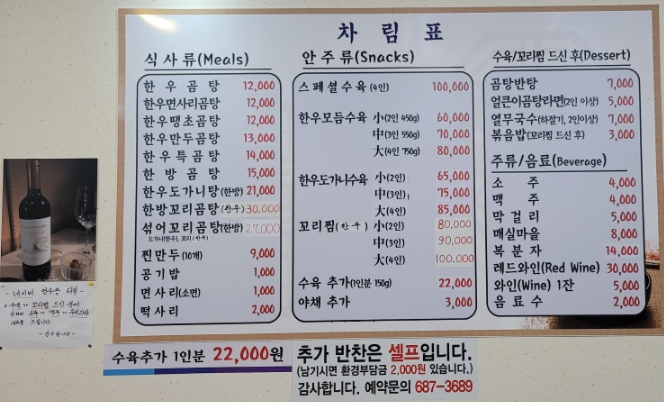 차 림 표
식 사 류(Meals)
한 우 곰 탕 12,000
한우면사리곰탕 12,000
한우땡초곰탕 12,000
한우만두곰탕 13,000
한 우 특 곰 탕 14,000
한 방 곰 탕 15,000
한우도가니탕(한방) 21,000
한방꼬리곰탕(한우) 30,000
섞어꼬리곰탕(한방) 27,000
찐만두(10개) 9,000
공 기 밥 1,000
면 사 리(소면) 1,000
떡 사 리 2,000
안 주 류(Snacks)
스 페 셜 수 육 (4인) 100,000
한우모듬수육 小(2인 450g) 60,000
中(3인 550g) 70,000
大(4인 750g) 80,000
한우도가니수육 小(2인) 65,000
中(3인) 75,000
大(4인) 85,000
꼬리찜(한우) 小(2인) 80,000
中(3인) 90,000
大(4인) 100,000
수육 추가(1인분 150g) 22,000
야채 추가 3,000
수육/꼬리찜 드신 후(Dessert)
곰탕반탕 7,000
얼큰이곰탕라면(2인 이상) 5,000
열무국수(하절기, 2인이상) 7,000
볶음밥(꼬리찜 드신 후) 3,000
주류/음료(Beverage)
소 주 4,000
맥 주 4,000
막 걸 리 5,000
매실마을 8,000
복 분 자 14,000
레드와인(Red Wine) 30,000
와인(Wine) 1잔 5,000
음 료 수 2,000
수육추가 1인분 22,000원
추가 반찬은 셀프입니다.
(남기시면 환경부담금 2,000원 있습니다.)
감사합니다. 예약문의 687-3689